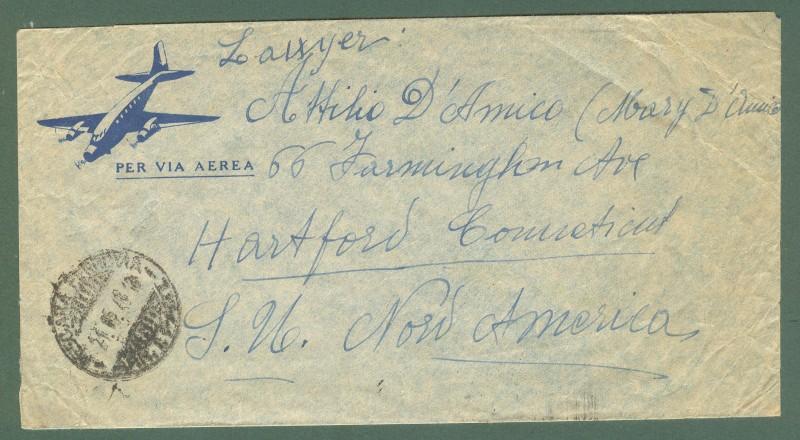 Lawyer:
Attilio D'Amico (Mary D'Amico
PER VIA AEREA
66 Farminghon Ave
Hartford Conneticut
S. U. Nord America